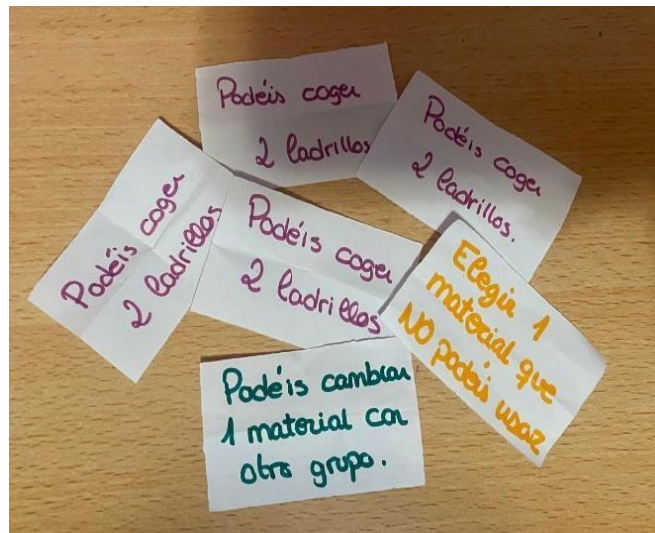 Podéis coger
2 ladrillos
Podéis coger
2 ladrillos.
Podéis coger
2 ladrillos
Podéis coger
2 ladrillos
Elegir 1
material que
NO podéis usar
Podéis cambiar
1 material con
otro grupo.